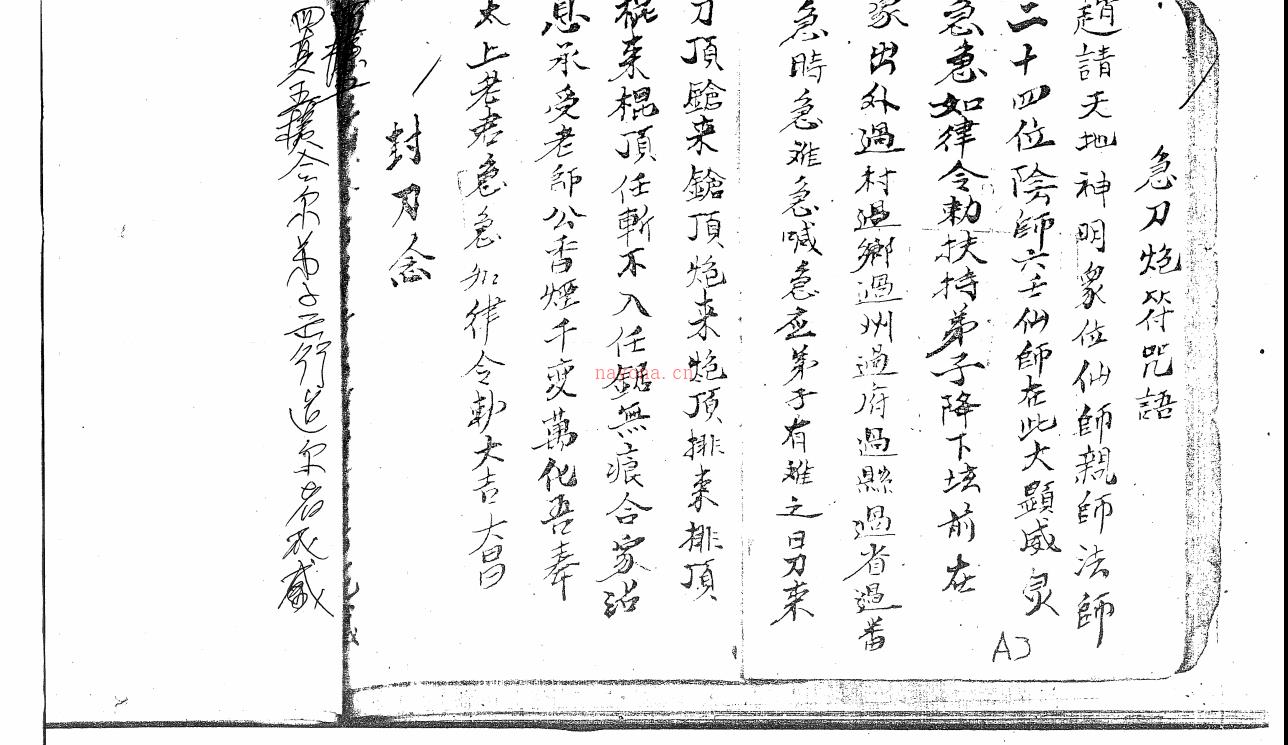 急刀炮符咒語
趙請天地神明眾位仙師親師法師
二十四位陰師六壬仙師在此大顯威灵
急急如律令勅扶持弟子降下坛前在
家出外過村過鄉過州過府過縣過省過番
急時急难急喊急应弟子有难之日刀来
刀頂鎗来鎗頂炮来炮頂排来排頂
棍来棍頂任斬不入任鋸無痕合家沾
恩承受老師公香煙千变萬化吾奉
太上老君急急如律令勅大吉大昌
封刀念
弟子
nayona.cn
A3